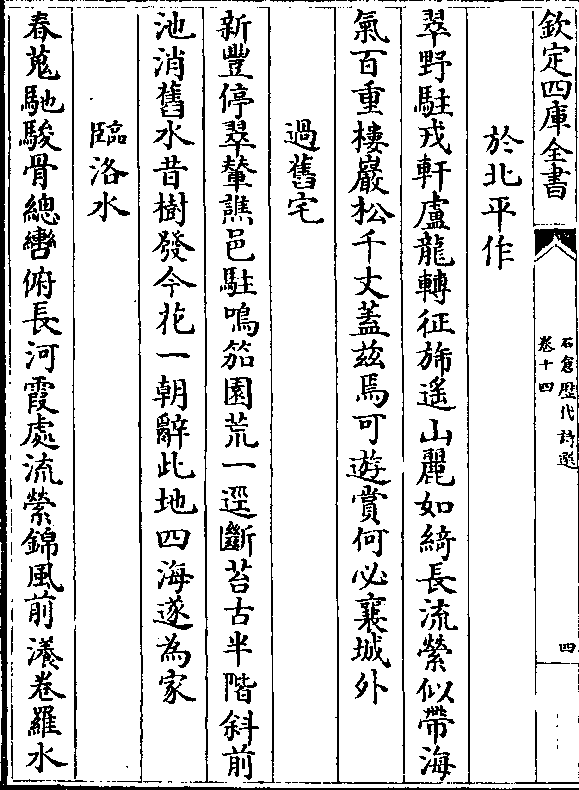 欽定四庫全書
石倉歷代詩選
卷十四
四
於北平作
翠野駐戎軒盧龍轉征斾遥山麗如綺長流縈似帶海
氣百重樓巖松千丈蓋兹焉可遊賞何必襄城外
過舊宅
新豐停翠輦譙邑駐鳴笳園荒一逕斷苔古半階斜前
池消舊水昔樹發今花一朝辭此地四海遂為家
臨洛水
春蒐馳駿骨總轡俯長河霞處流縈錦風前瀁卷羅水